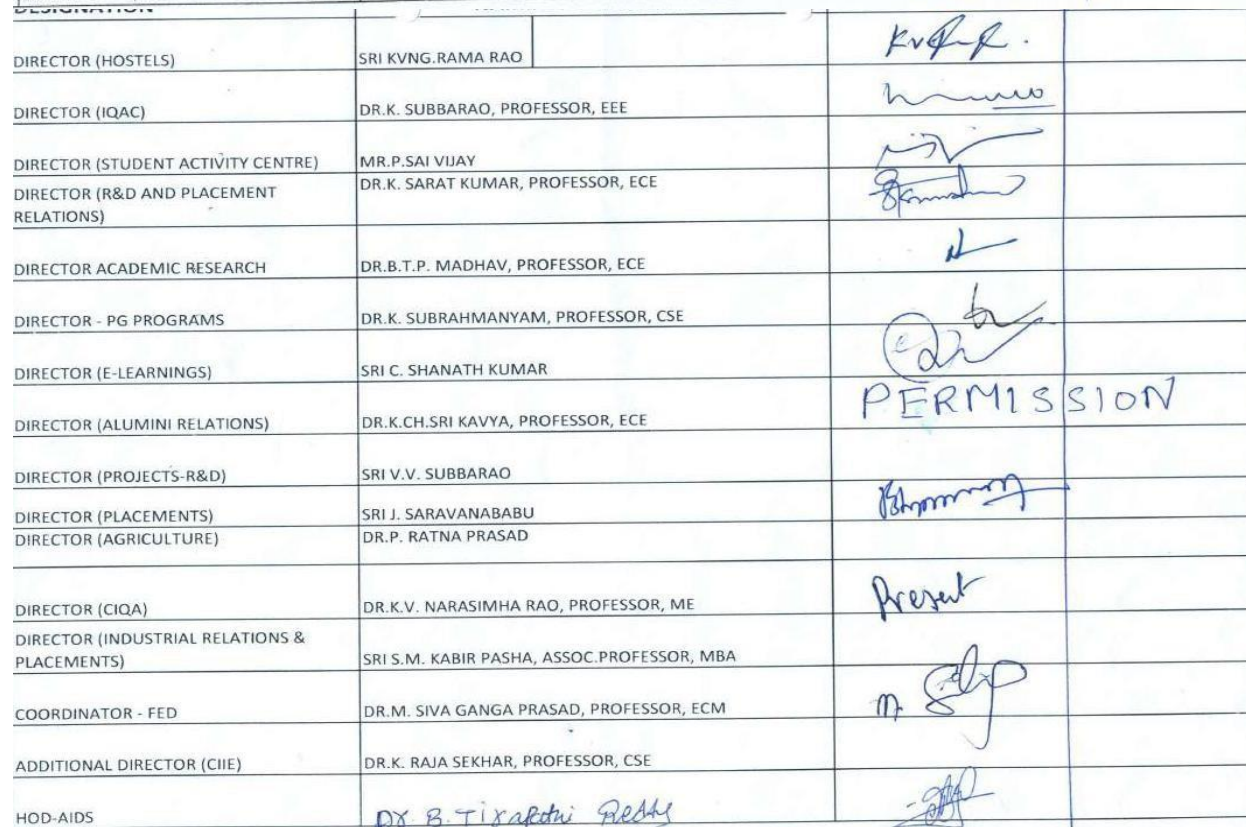 DESIGNATION
DIRECTOR (HOSTELS) SRI KVNG.RAMA RAO
DIRECTOR (IQAC) DR.K. SUBBARAO, PROFESSOR, EEE
DIRECTOR (STUDENT ACTIVITY CENTRE) MR.P.SAI VIJAY
DIRECTOR (R&D AND PLACEMENT DR.K. SARAT KUMAR, PROFESSOR, ECE
RELATIONS)
DIRECTOR ACADEMIC RESEARCH DR.B.T.P. MADHAV, PROFESSOR, ECE
DIRECTOR - PG PROGRAMS DR.K. SUBRAHMANYAM, PROFESSOR, CSE
DIRECTOR (E-LEARNINGS) SRI C. SHANATH KUMAR
DIRECTOR (ALUMINI RELATIONS) DR.K.CH.SRI KAVYA, PROFESSOR, ECE PERMISSION
DIRECTOR (PROJECTS-R&D) SRI V.V. SUBBARAO
DIRECTOR (PLACEMENTS) SRI J. SARAVANABABU
DIRECTOR (AGRICULTURE) DR.P. RATNA PRASAD
DIRECTOR (CIQA) DR.K.V. NARASIMHA RAO, PROFESSOR, ME Present
DIRECTOR (INDUSTRIAL RELATIONS &
PLACEMENTS) SRI S.M. KABIR PASHA, ASSOC.PROFESSOR, MBA
COORDINATOR - FED DR.M. SIVA GANGA PRASAD, PROFESSOR, ECM
ADDITIONAL DIRECTOR (CIIE) DR.K. RAJA SEKHAR, PROFESSOR, CSE
HOD-AIDS Dr. B. Tirapathi Reddy